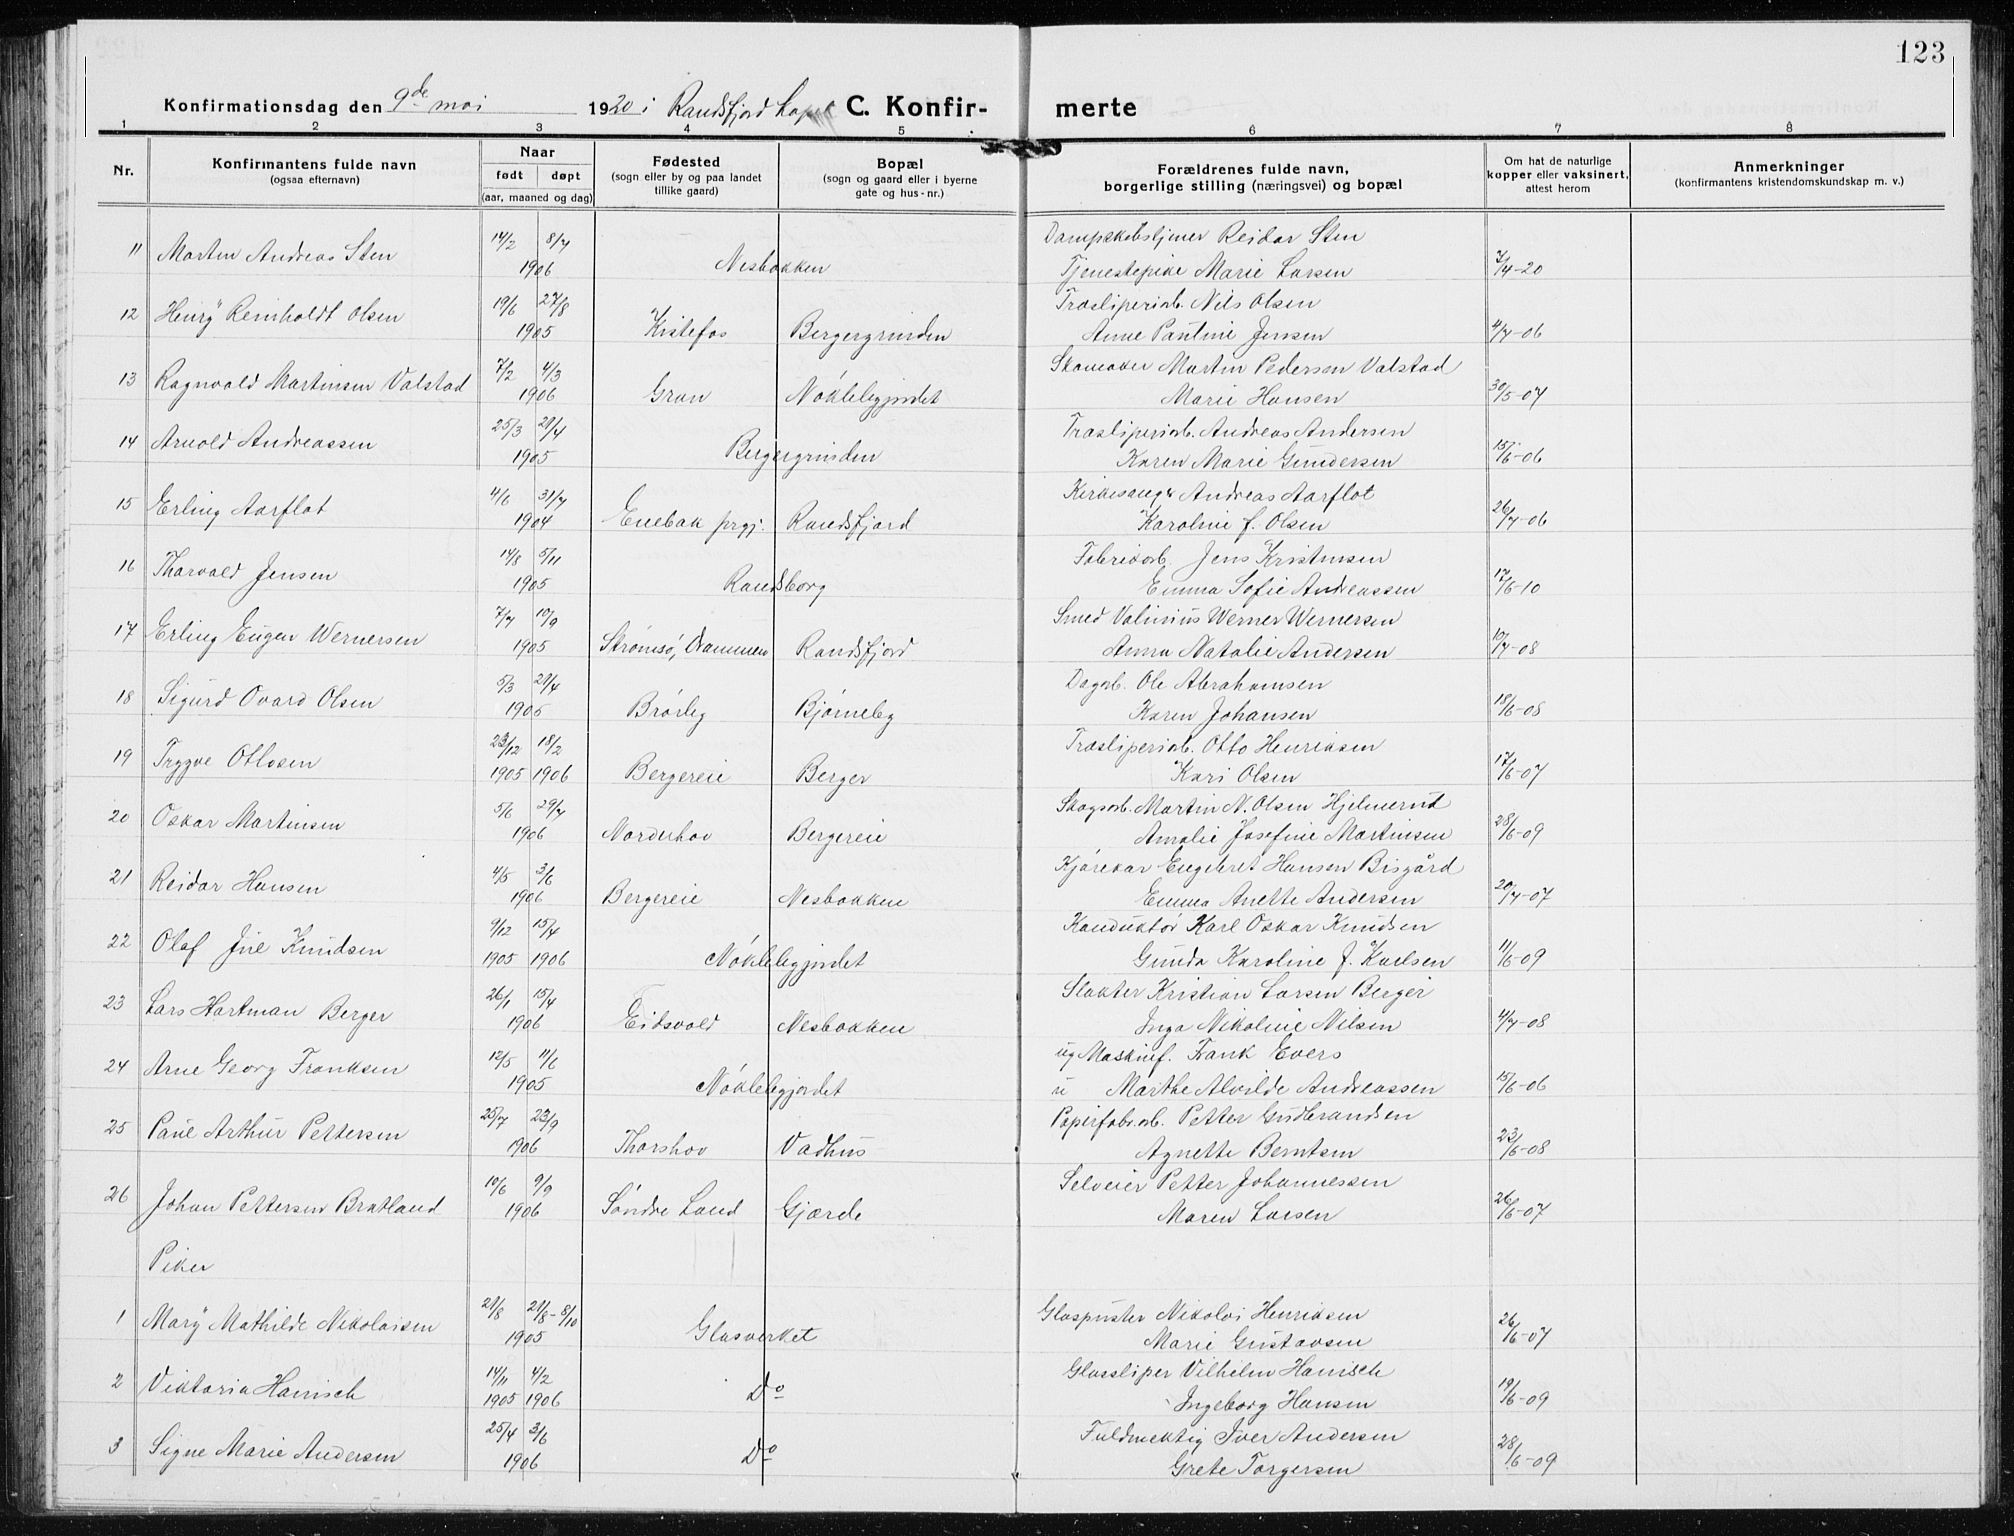 123
Konfirmationsdag den 9de mai 1920 i Randsfjord C. Konfir- merte
1 2 3 4 5 6 7 8
Nr. Konfirmantens fulde navn (ogsaa efternavn) Naar født døpt (aar, maaned og dag) Fødested (sogn eller by og paa landet tillike gaard) Bopæl (sogn og gaard eller i byerne gate og hus-nr.) Forældrenes fulde navn, borgerlige stilling (næringsvei) og bopæl Om hat de naturlige kopper eller vaksinert, attest herom Anmerkninger (konfirmantens kristendomskundskap m. v.)
14/2 8/7 Dampskibstjener Reidar Sten
11 Martin Andreas Sten 1906 Nesbakken Tjenestepike Marie Larsen 7/4-20
19/6 27/8 Træsliperiarb. Nils Olsen
12 Henry Reinholdt Olsen 1905 Kistefos Bergergrinden Anne Pauline Jensen 4/7-06
7/2 4/3 Skomaker Martin Pedersen Valstad
13 Ragnvald Martinsen Valstad 1906 Gran Nøklebygjordet Marie Hansen 30/5-07
25/3 21/4 Træsliperiarb. Andreas Andersen
14 Arnold Andreassen 1905 Bergergrinden Karen Marie Gundersen 15/6-06
4/6 31/7 Kirkesanger Andreas Aarflot
15 Erling Aarflot 1904 Enebak prgj. Randsfjord Karoline f. Olsen 26/7-06
14/8 5/11 Fabrikarb. Jens Kristensen
16 Thorvald Jensen 1905 Randsborg Emma Sofie Andreassen 17/6-10
7/7 10/9 Smed Valinius Werner Wernersen
17 Erling Eugen Wernersen 1905 Strømsø, Drammen Randsfjord Anna Natalie Andersen 10/7-08
5/3 21/4 Dagarb. Ole Abrahamsen
18 Sigurd Ovard Olsen 1905 Brørby Bjørneby Karen Johansen 18/6-08
23/12 18/2 Træsliperiarb. Otto Henriksen
19 Trygve Ottosen 1905 1906 Bergereie Berger Kari Olsen 17/6-07
5/6 29/7 Skogsarb. Martin N. Olsen Hjelmerud
20 Oskar Martinsen 1906 Norderhov Bergereie Amalie Josefine Martinsen 28/6-09
4/5 3/6 Kjørekar Engebret Hansen Bisgård
21 Reidar Hansen 1906 Bergereie Nesbakken Emma Anette Andersen 20/7-07
9/12 15/4 Konduktør Karl Oskar Knudsen
22 Olaf Juel Knudsen 1905 1906 Nøklebygjordet Gunda Karoline f. Karlsen 11/6-09
26/1 15/4 Slakter Kristian Larsen Berger
23 Lars Hartman Berger 1906 Eidsvold Nesbakken Inga Nikoline Nilsen 4/7-08
12/5 11/6 ug Maskinf. Frank Evers
24 Arne Georg Franksen 1905 Nøklebygjordet u Marthe Alvilde Andreassen 15/6-06
25/7 23/9 Papirfabr.arb. Petter Gudbrandsen
25 Paul Arthur Pettersen 1906 Thorshov Vadhus Agnette Berntsen 23/6-08
10/6 9/9 Selveier Petter Johannessen
26 Johan Pettersen Bratland 1906 Søndre Land Gjærde Maren Larsen 26/6-07
Piker
21/8 21/8-8/10 Glaspuster Nikolai Henriksen
1 Mary Mathilde Nikolaisen 1905 Glasverket Marie Gustavsen 26/6-07
14/11 4/2 Glassliper Vilhelm Hanisch
2 Viktoria Hanisch 1905 1906 Do Ingeborg Hansen 19/6-09
25/4 3/6 Fuldmektig Iver Andersen
3 Signe Marie Andersen 1906 Do Grete Torgersen 28/6-09